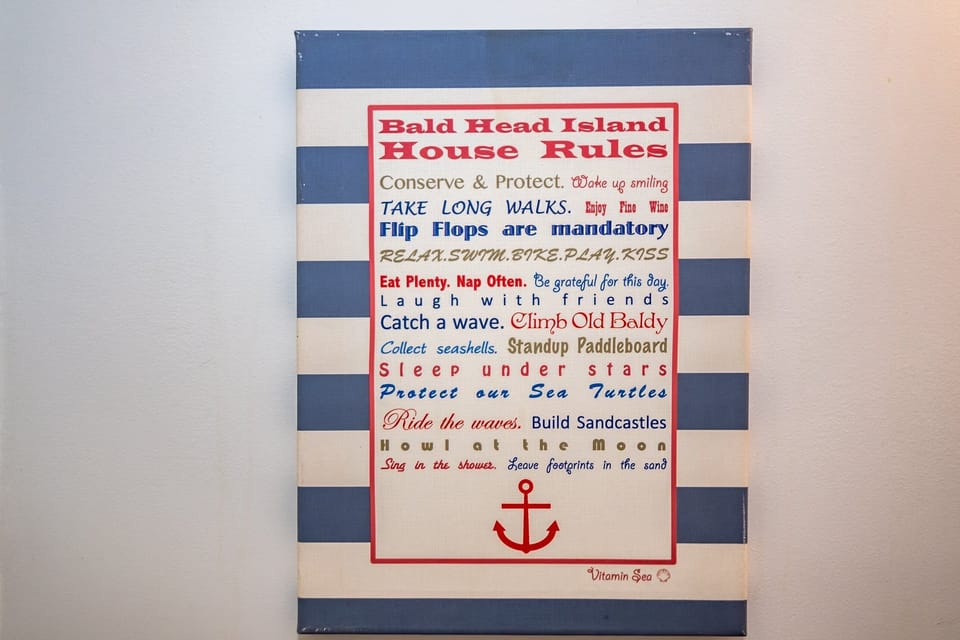 Bald Head Island
House Rules
Conserve & Protect. Wake up smiling
TAKE LONG WALKS. Enjoy Fine Wine
Flip Flops are mandatory
RELAX.SWIM.BIKE.PLAY.KISS
Eat Plenty. Nap Often. Be grateful for this day.
Laugh with friends
Catch a wave. Climb Old Baldy
Collect seashells. Standup Paddleboard
Sleep under stars
Protect our Sea Turtles
Ride the waves. Build Sandcastles
Howl at the Moon
Sing in the shower. Leave footprints in the sand
Vitamin Sea